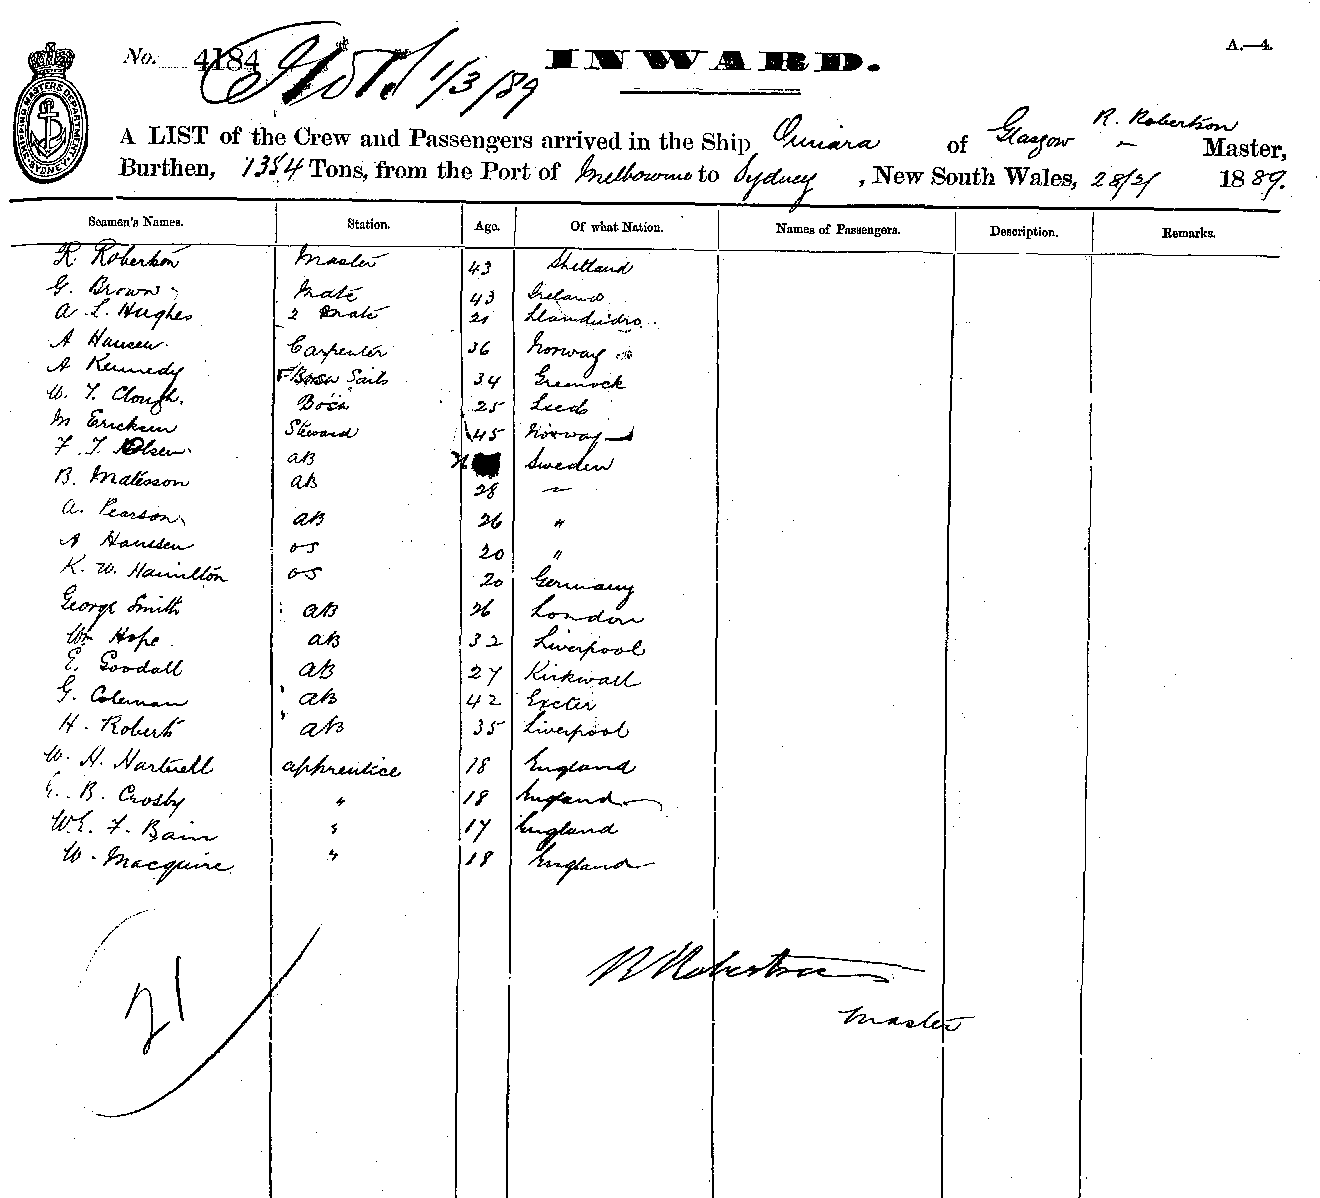 A.—4.
No. 4184 1/3/89 INWARD.
SHIPPING MASTERS DEPARTMENT SYDNEY
A LIST of the Crew and Passengers arrived in the Ship of Glasgow R. Robertson Master,
Burthen, 1354 Tons, from the Port of Melbourne to Sydney, New South Wales, 28/2/ 1889.
Seamen's Names. Station. Age. Of what Nation. Names of Passengers. Description. Remarks.
R Robertson Master 43 Shetland
G. Brown Mate 43 Ireland
A L Hughes 2 Mate 21
A Hansen Carpenter 36 Norway
A Kennedy Bosn Sails 34 Greenock
W. T. Clough. Bosn 25 Leeds
M Ericksen Steward 45 Norway
F. T. Olsen AB Sweden
B. Matesson AB 28 "
A. Pearson AB 26 "
A Hanssen OS 20 "
K. W. Hamilton OS 20 Germany
George Smith AB 26 London
Wm Hope AB 32 Liverpool
E. Goodall AB 27 Kirkwall
G. Coleman AB 42 Exeter
H. Roberts AB 35 Liverpool
W. H. Hartnell apprentice 18 England
E. B. Crosby " 18 England
W. E. F. Bain " 17 England
W. Macquire " 18 England
21
R Robertson
Master